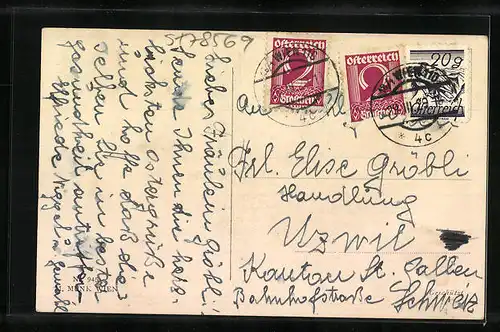 5178569
Liebes Fräulein Gröbli!
Sende Ihnen die herz-
lichsten Ostergrüße
und hoffe daß die-
selben Sie in bester
Gesundheit antreffen
Elfriede
Österreich
2
Groschen
Österreich
2
Groschen
20g
Österreich
WIEN 110
WIEN 110
* 4c
An
Frl. Elise Gröbli
Handlung
Uzwil
Kanton St. Gallen
Bahnhofstraße Schweiz
M. MUNK WIEN